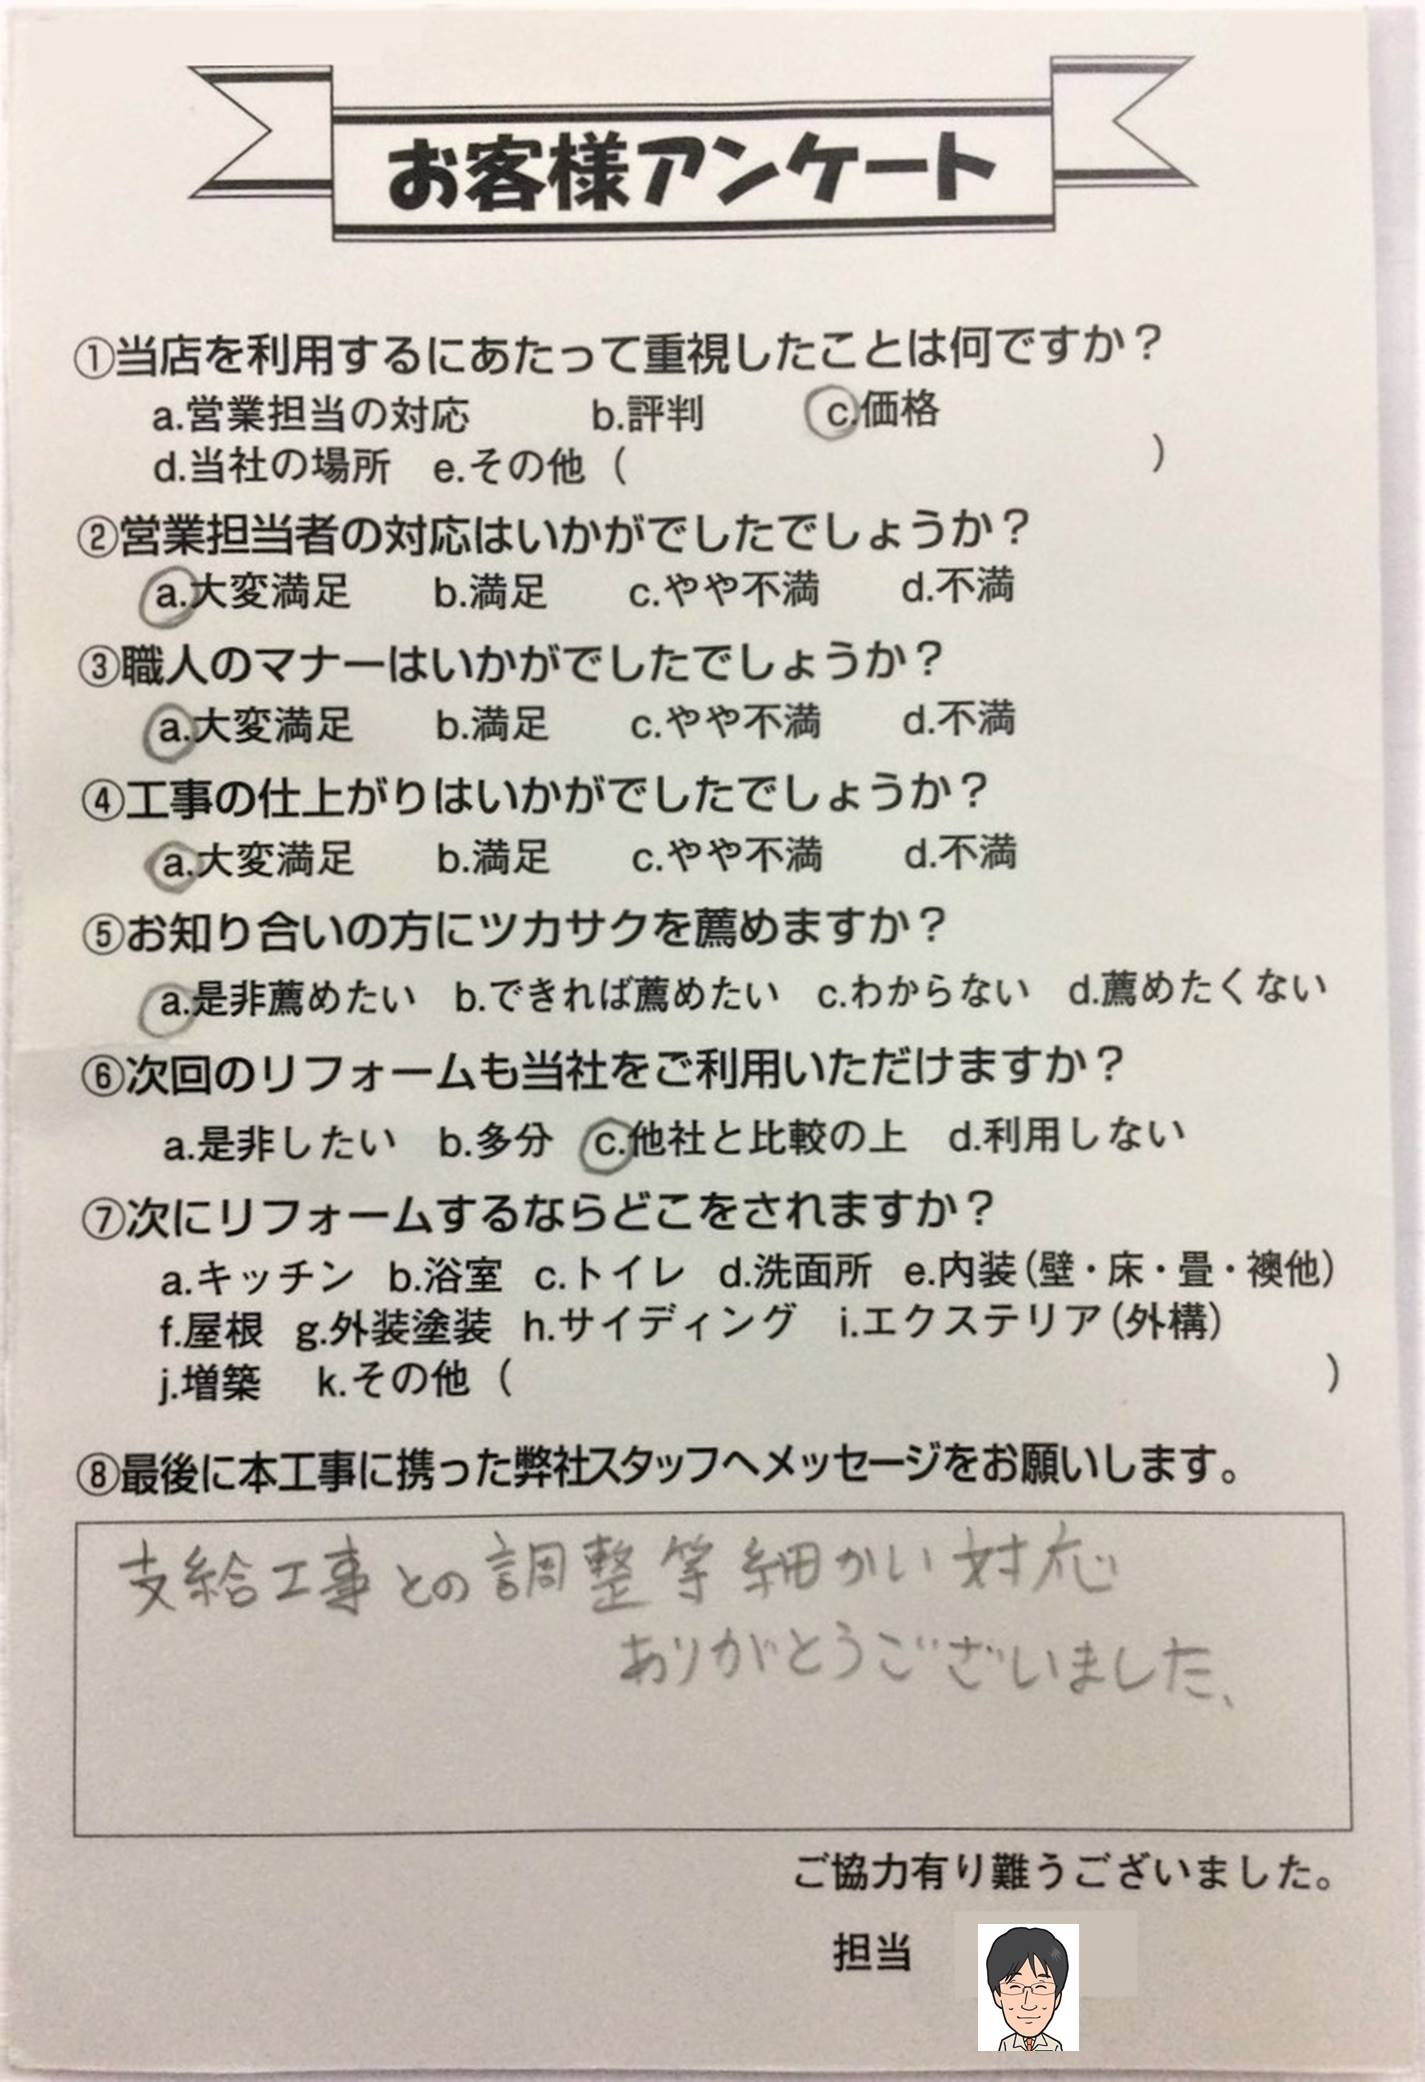 お客様アンケート
①当店を利用するにあたって重視したことは何ですか？
a.営業担当の対応 b.評判 c.価格
d.当社の場所 e.その他（ ）
②営業担当者の対応はいかがでしたでしょうか？
a.大変満足 b.満足 c.やや不満 d.不満
③職人のマナーはいかがでしたでしょうか？
a.大変満足 b.満足 c.やや不満 d.不満
④工事の仕上がりはいかがでしたでしょうか？
a.大変満足 b.満足 c.やや不満 d.不満
⑤お知り合いの方にツカサクを薦めますか？
a.是非薦めたい b.できれば薦めたい c.わからない d.薦めたくない
⑥次回のリフォームも当社をご利用いただけますか？
a.是非したい b.多分 c.他社と比較の上 d.利用しない
⑦次にリフォームするならどこをされますか？
a.キッチン b.浴室 c.トイレ d.洗面所 e.内装（壁・床・畳・襖他）
f.屋根 g.外装塗装 h.サイディング i.エクステリア（外構）
j.増築 k.その他（ ）
⑧最後に本工事に携った弊社スタッフへメッセージをお願いします。
支給工事との調整等細かい対応
ありがとうございました、
ご協力有り難うございました。
担当